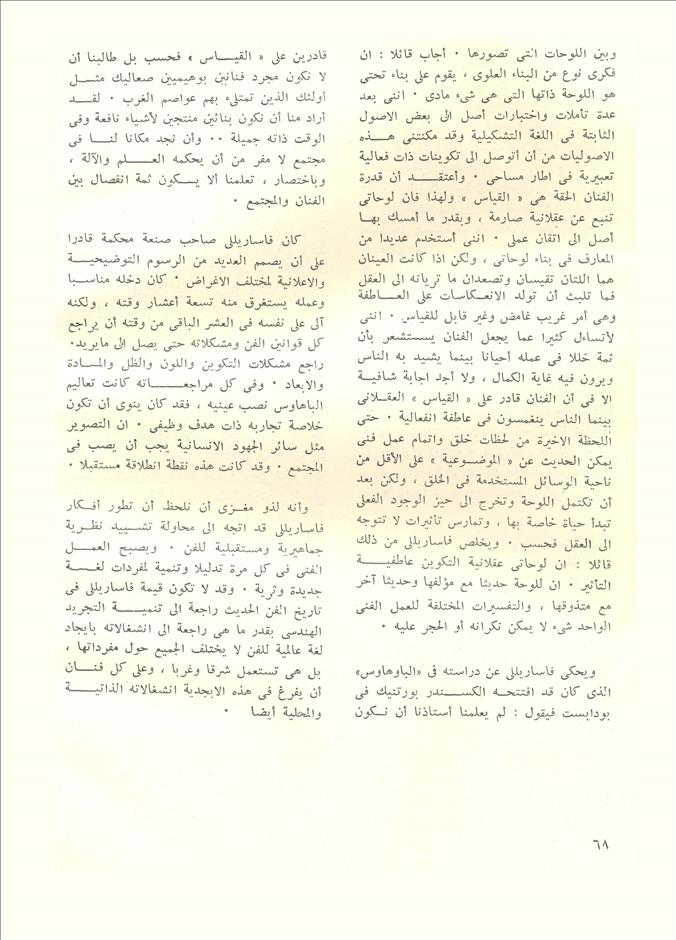 وبين اللوحات التى تصورها ٠ أجاب قائلا : ان
فكرى نوع من البناء العلوى ، يقوم على بناء تحتى
هو اللوحة ذاتها التى هى شىء مادى ٠ اننى بعد
عدة تأملات واختبارات أصل الى بعض الاصول
الثابتة فى اللغة التشكيلية وقد مكنتنى هذه
الاصوليات من أن أتوصل الى تكوينات ذات فعالية
تعبيرية فى اطار مساحى ٠ وأعتقد أن قدرة
الفنان الحقة هى « القياس » ولهذا فان لوحاتى
تنبع عن عقلانية صارمة ، وبقدر ما أمسك بها
أصل الى اتقان عملى ٠ اننى أستخدم عديدا من
المعارف فى بناء لوحاتى ، ولكن اذا كانت العينان
هما اللتان تقيسان وتصعدان ما تريانه الى العقل
فما تلبث أن تولد الانعكاسات على العاطفة
وهى أمر غريب غامض وغير قابل للقياس ٠ اننى
لأتساءل كثيرا عما يجعل الفنان يستشعر بأن
ثمة خللا فى عمله أحيانا بينما يشيد به الناس
ويرون فيه غاية الكمال ، ولا أجد اجابة شافية
الا فى أن الفنان قادر على « القياس » العقلانى
بينما الناس ينغمسون فى عاطفة انفعالية ٠ حتى
اللحظة الاخيرة من لحظات خلق واتمام عمل فنى
يمكن الحديث عن « الموضوعية » على الأقل من
ناحية الوسائل المستخدمة فى الخلق ، ولكن بعد
أن تكتمل اللوحة وتخرج الى حيز الوجود الفعلى
تبدأ حياة خاصة بها ، وتمارس تأثيرات لا تتوجه
الى العقل فحسب ٠ ويخلص فاساريللى من ذلك
قائلا : ان لوحاتى عقلانية التكوين عاطفية
التأثير ٠ ان للوحة حديثا مع مؤلفها وحديثا آخر
مع متذوقها ، والتفسيرات المختلفة للعمل الفنى
الواحد شىء لا يمكن نكرانه أو الحجر عليه ٠
ويحكى فاساريللى عن دراسته فى «الباوهاوس»
الذى كان قد افتتحه الكسندر بورتنيك فى
بودابست فيقول : لم يعلمنا أستاذنا أن نكون
قادرين على « القياس » فحسب بل طالبنا أن
لا نكون مجرد فنانين بوهيميين صعاليك مثل
أولئك الذين تمتلىء بهم عواصم الغرب ٠ لقد
أراد منا أن نكون بنائين منتجين لأشياء نافعة وفى
الوقت ذاته جميلة ٠٠ وأن نجد مكانا لنا فى
مجتمع لا مفر من أن يحكمه العلم والآلة ،
وباختصار ، تعلمنا ألا يكون ثمة انفصال بين
الفنان والمجتمع ٠
كان فاساريللى صاحب صنعة محكمة قادرا
على أن يصمم العديد من الرسوم التوضيحية
والاعلانية لمختلف الاغراض ٠ كان دخله مناسبا
وعمله يستغرق منه تسعة أعشار وقته ، ولكنه
آلى على نفسه فى العشر الباقى من وقته أن يراجع
كل قوانين الفن ومشكلاته حتى يصل الى مايريد٠
راجع مشكلات التكوين واللون والظل والمادة
والابعاد ٠ وفى كل مراجعاته كانت تعاليم
الباهاوس نصب عينيه ، فقد كان ينوى أن تكون
خلاصة تجاربه ذات هدف وظيفى ٠ ان التصوير
مثل سائر الجهود الانسانية يجب أن يصب فى
المجتمع ٠ وقد كانت هذه نقطة انطلاقة مستقبلا ٠
وأنه لذو مغزى أن نلحظ أن تطور أفكار
فاساريللى قد اتجه الى محاولة تشييد نظرية
جماهيرية ومستقبلية للفن ٠ ويصبح العمل
الفنى فى كل مرة تدليلا وتنمية لمفردات لغة
جديدة وثرية ٠ وقد لا تكون قيمة فاساريللى فى
تاريخ الفن الحديث راجعة الى تنمية التجريد
الهندسى بقدر ما هى راجعة الى انشغالاته بايجاد
لغة عالمية للفن لا يختلف الجميع حول مفرداتها ،
بل هى تستعمل شرقا وغربا ، وعلى كل فنان
أن يفرغ فى هذه الابجدية انشغالاته الذاتية
والمحلية أيضا ٠
٦٨